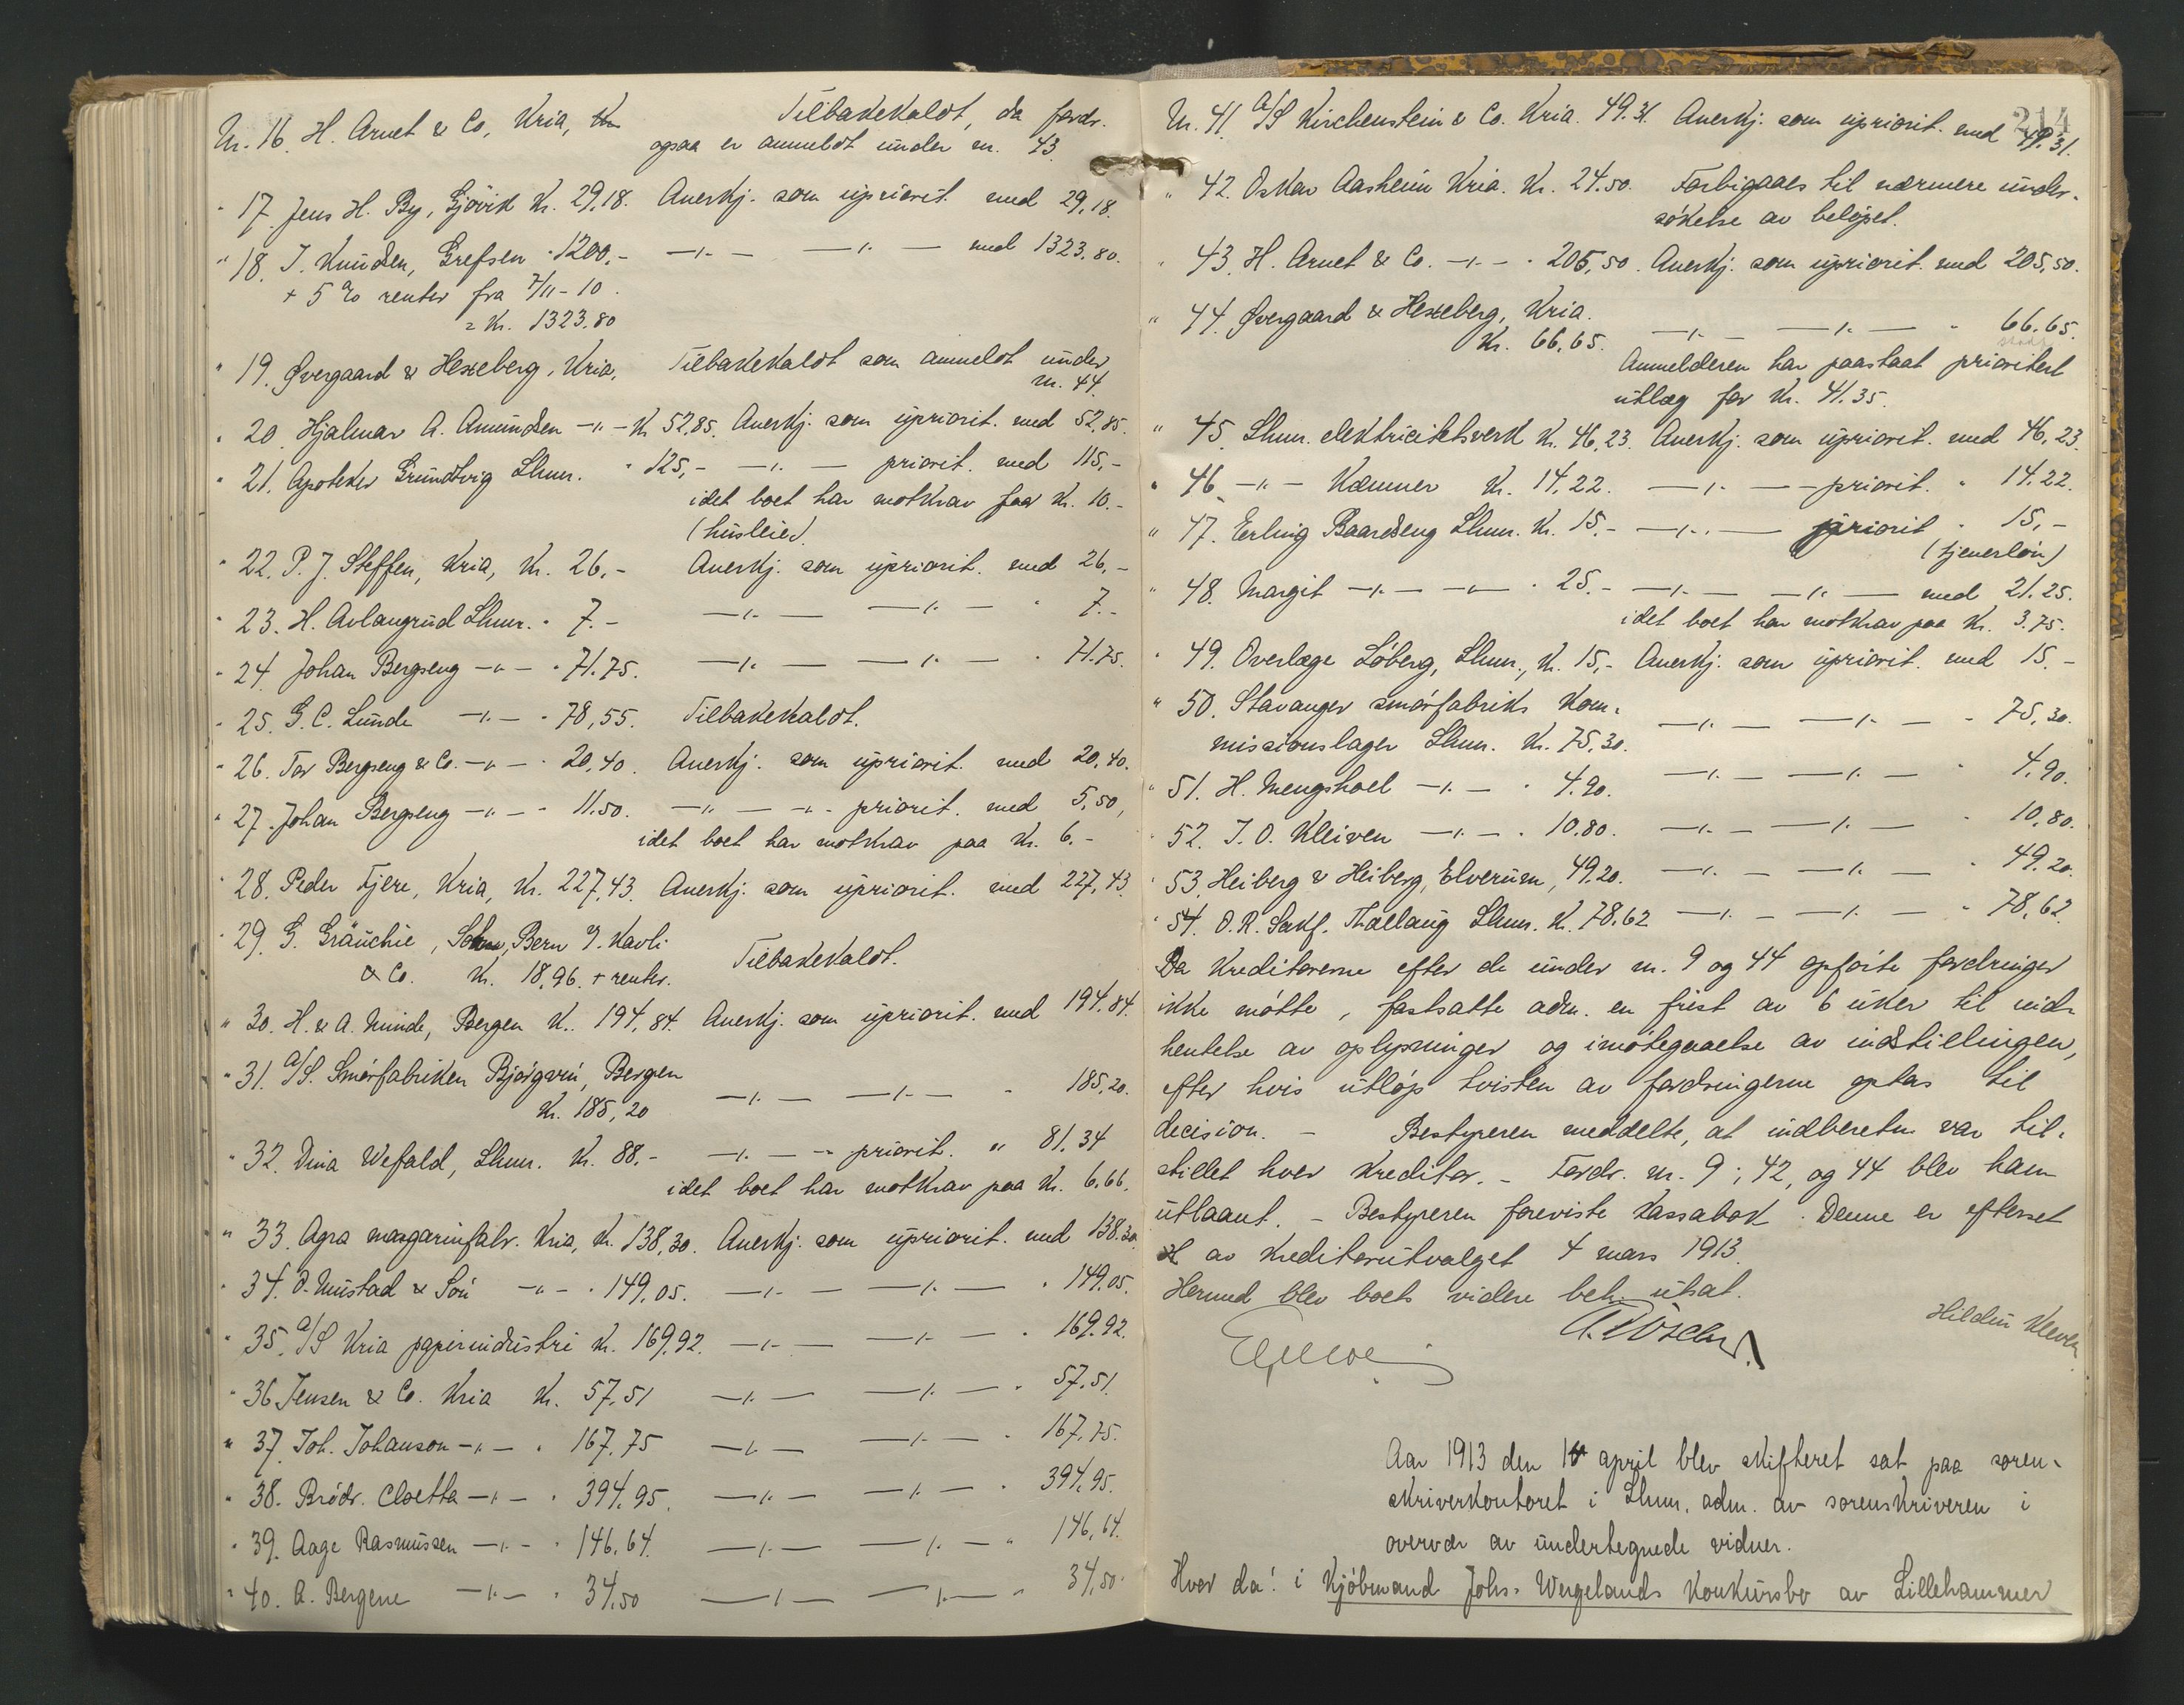 Nr. 16. H. Arnet & Co, Kria, Tilbakekaldt, da fordr.
ogsaa er anmeldt under nr. 43
" 17. Jens H. By, Gjövik Kr. 29,18. Anerkj. som upriorit. med 29,18.
" 18. J. Knudsen, Grefsen " 1200,- —"— —"— med 1323.80.
+ 5 % renter fra 7/11-10.
= Kr. 1323.80
" 19. Øvergaard & Hesseberg, Kria, Tilbakekaldt som anmeldt under
nr. 44.
" 20. Hjalmar A. Amundsen —"— Kr 52,85. Anerkj. som uppriorit. med 52,85.
" 21. Apoteker Grundtvig Lhmr. " 125,- —"— priorit. med 115,-
idet boet har motkrav paa Kr. 10.-
(husleie).
" 22. P. J. Steffen, Kria, Kr. 26.- Anerkj. som upriorit. med 26,-
" 23. H. Avlangrud Lhmr. " 7.- —"— —"— " 7.-
" 24. Johan Bergseng —"— " 71.75. —"— —"— " 71.75.
" 25. G. C. Lunde —"— " 78,55. Tilbakekaldt.
" 26. Tor Bergseng & Co. —"— " 20,40. Anerkj. som upriorit. med 20,40.
" 27. Johan Bergseng —"— " 11.50. —"— —"— priorit. med 5,50,
idet boet har motkrav paa Kr. 6.-
" 28. Peder Fjere, Kria, Kr. 227,43. Anerkj. som upriorit. med 227,43.
" 29. G. Gräuchie, Bern v. Kavli
& Co. Kr. 18,96. + renter. Tilbakekaldt.
" 30. H. & A. Minde, Bergen Kr. 194,84. Anerkj. som upriorit. med 194.84.
" 31. A/S. Smörfabriken Björgvin, Bergen
Kr. 185,20 —"— —"— " 185,20.
" 32. Dina Wefald, Lhmr. Kr. 88.- —"— — priorit. " 81,34
idet boet har motkrav paa Kr. 6.66.
" 33. Agra margarinfabr. Kria, Kr. 138,30. Anerkj. som upriorit. med 138.30
" 34. O. Mustad & Sön —"— " 149,05. —"— —"— " 149,05.
" 35. A/S Kria papirindustri Kr. 169,92. —"— —"— " 169.92.
" 36 Jensen & Co. Kria Kr. 57,51 —"— —"— " 57.51.
" 37. Joh. Johanson —"— " 167,75 —"— —"— " 167,75.
" 38. Brödr. Cloetta —"— " 394,95. —"— —"— " 394,95.
" 39. Aage Rasmussen —"— " 146,64. —"— —"— " 146,64.
" 40. A. Bergene —"— " 34,50 —"— —"— " 34,50.
214
Nr. 41 A/S Kirchenstein & Co. Kria. 49.31. Anerkj. som upriorit. med 49.31.
" 42. Oskar Aasheim Kria. Kr. 24.50. Forbigaaes til nærmere under-
sökelse av belöpet.
" 43. H. Arnet & Co. —"— " 205,50. Anerkj. som upriorit. med 205,50.
" 44. Øvergaard & Hesseberg, Kria.
Kr. 66,65. —"— —"— " 66,65.
Anmelderen har paastaat prioritert
utlæg for Kr. 41.35.
" 45. Lhmr. elektricitetsverk Kr. 46,23. Anerkj. som upriorit. med 46,23.
" 46. —"— Kæmner Kr. 14,22. —"— — priorit. " 14.22.
" 47. Erling Baardseng Lhmr. Kr. 15.- —"— priorit " 15,-
(tjenerlön)
" 48. Margit —"— —"— " 25.- —"— —"— med 21.25.
idet boet har motkrav paa Kr. 3.75.
" 49. Overlæge Löberg, Lhmr., Kr. 15,- Anerkj. som upriorit. med 15.-
" 50. Stavanger smörfabriks kom-
missionslager Lhmr. Kr. 75,30. —"— —"— " 75,30.
" 51. H. Mengshoel —"— " 4.90. —"— —"— " 4.90.
" 52. J. O. Kleiven —"— " 10.80. —"— —"— " 10,80.
" 53. Heiberg & Heiberg, Elverum, 49,20. —"— —"— " 49.20.
" 54. O. R. Sakf. Thallaug Lhmr. Kr. 78.62 —"— —"— " 78,62.
Da kreditorerne efter de under nr. 9 og 44 opförte fordringer
ikke mötte, fastsatte adm. en frist av 6 uker til ind-
hentelse av oplysninger og imötegaaelse av indstillingen,
efter hvis utlöp tvisten av fordringerne optas til
decision. – Bestyreren meddelte, at indberetn. var til-
stillet hver kreditor. – Fordr. nr. 9, 42, og 44 blev ham
utlaant. – Bestyreren foreviste kassabok. Denne er efterset
av kreditorutvalget 4 mars 1913.
Hermed blev boets videre beh. utsat.
Aar 1913 den april blev skifteret sat paa soren-
skriverkontoret i Lhmr. adm. av sorenskriveren i
overvær av undertegnede vidner.
Hvor da: i Kjöbmand Johs. Wergelands Konkursbo av Lillehammer